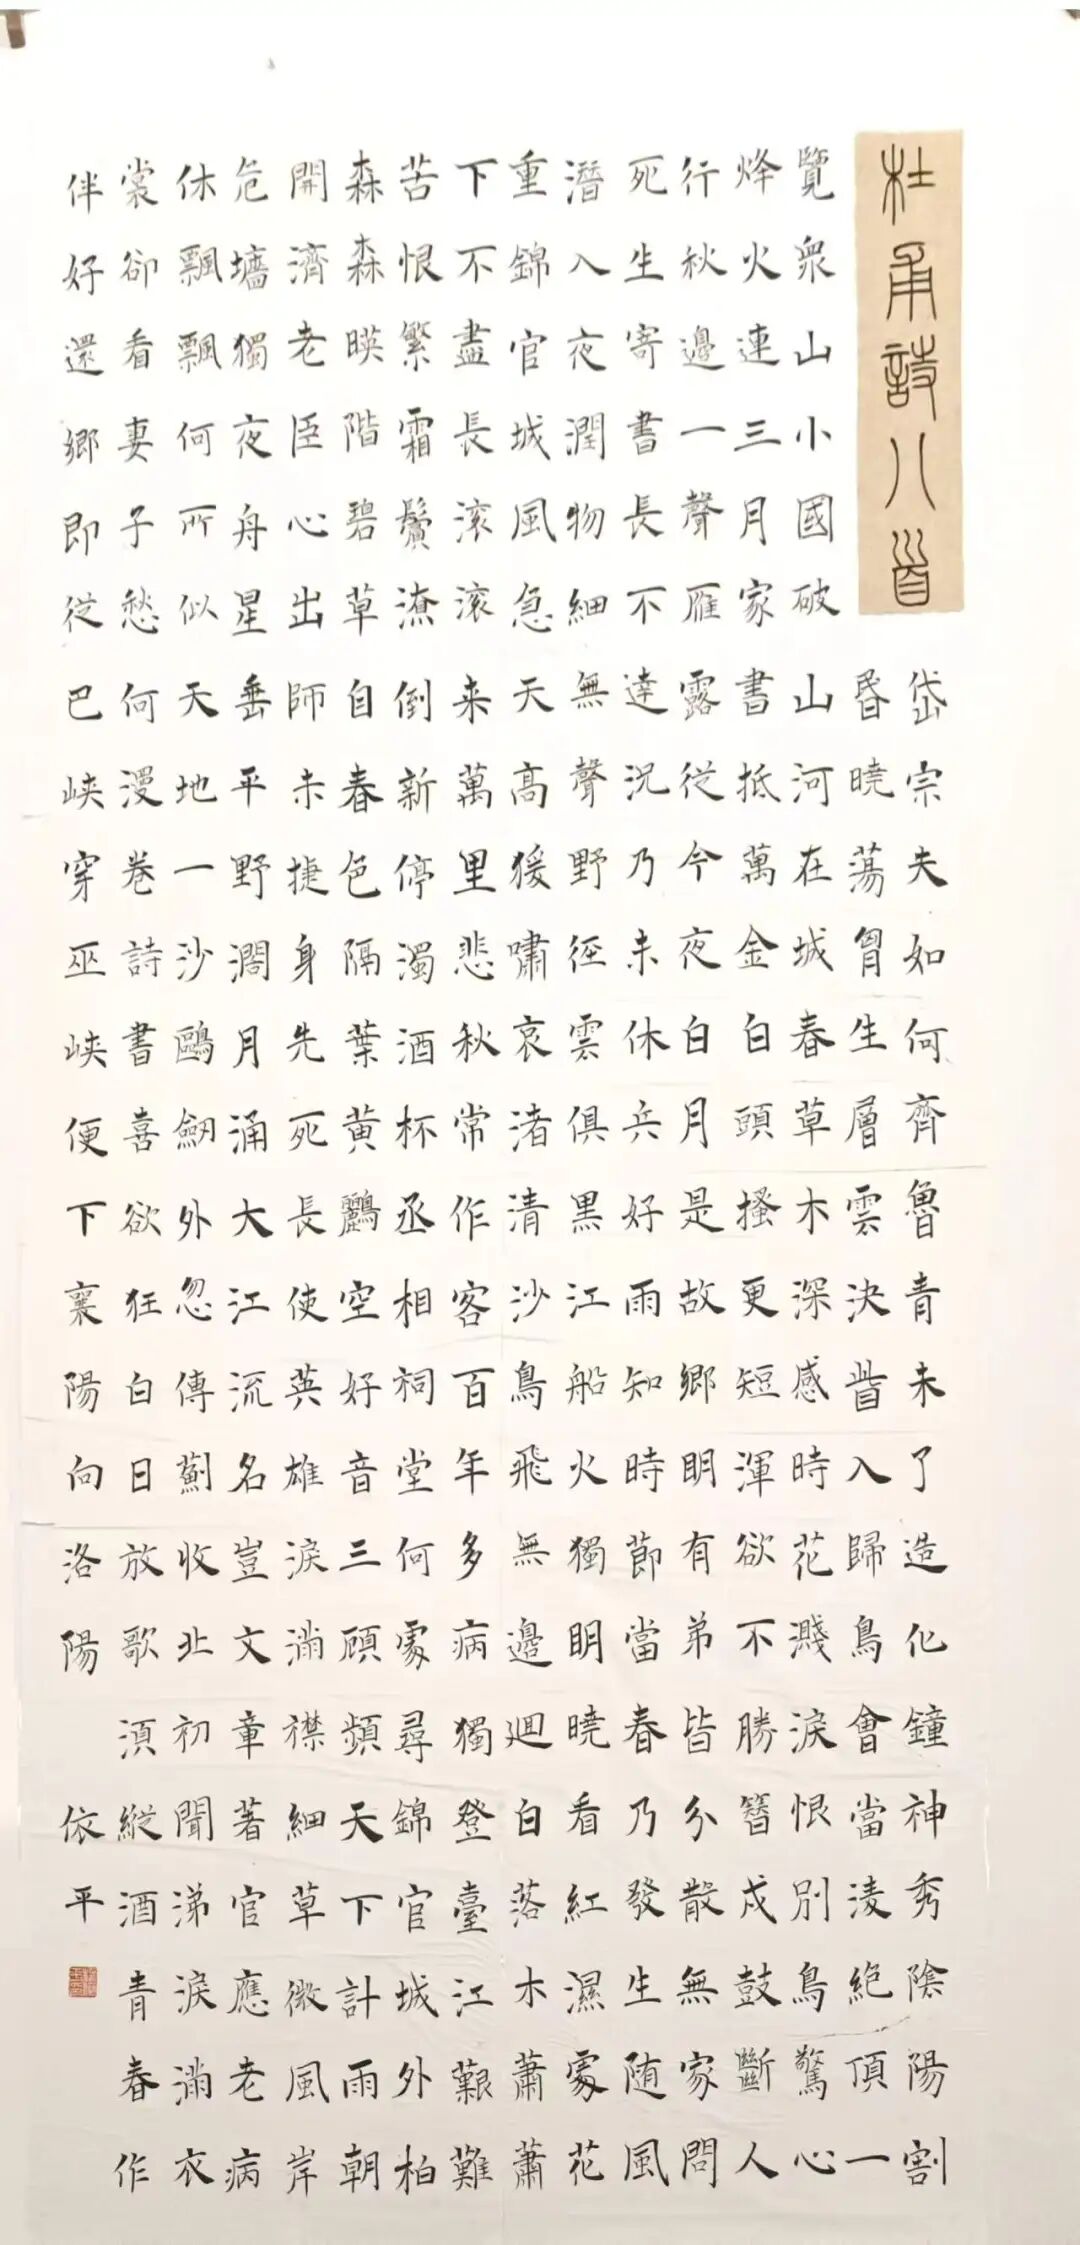 杜甫詩八首
岱宗夫如何齊魯青未了造化鐘神秀陰陽割
昏曉蕩胷生層雲決眥入歸鳥會當淩絕頂一
覽衆山小國破山河在城春草木深感時花濺淚恨別鳥驚心
烽火連三月家書抵萬金白頭搔更短渾欲不勝簪戍鼓斷人
行秋邊一聲雁露從今夜白月是故鄉明有弟皆分散無家問
死生寄書長不達況乃未休兵好雨知時節當春乃發生随風
潛入夜潤物細無聲野徑雲俱黑江船火獨明曉看紅濕處花
重錦官城風急天高猨嘯哀渚清沙鳥飛無邊迴白落木蕭蕭
下不盡長滚滚来萬里悲秋常作客百年多病獨登臺江艱難
苦恨繁霜鬢潦倒新停濁酒杯丞相祠堂何處尋錦官城外柏
森森暎階碧草自春色隔葉黄鸝空好音三顧頻天下計雨朝
開濟老臣心出師未捷身先死長使英雄淚滿襟細草微風岸
危墻獨夜舟星垂平野濶月涌大江流名豈文章著官應老病
休飄飄何所似天地一沙鷗劒外忽傳薊收北初聞涕淚滿衣
裳卻看妻子愁何漫卷詩書喜欲狂白日放歌須縱酒青春作
伴好還鄉即從巴峽穿巫峽便下襄陽向洛陽 依平